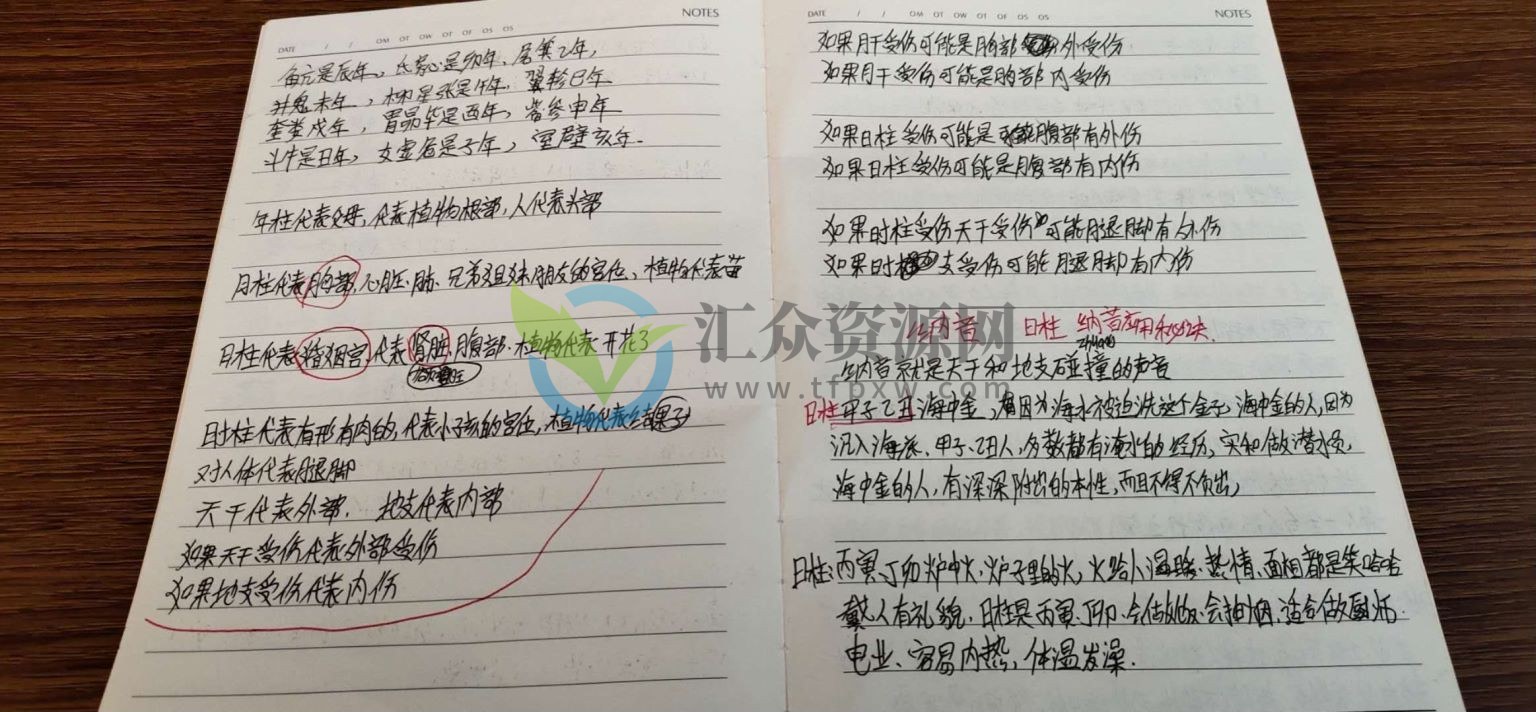 NOTES
DATE / / OM OT OW OT OF OS OS
角亢是辰年，氐房心是卯年，尾箕乙年，
井鬼未年，柳星张是午年，翼轸巳年
奎娄戌年，胃昴毕是酉年，觜参申年
斗牛是丑年，女虚危是子年，室壁亥年.
年柱代表父母，代表植物根部，人代表头部
月柱代表胸部，心脏、肺、兄弟姐妹朋友的宫位、植物代表苗
日柱代表婚姻宫，代表肾脏、腹部、植物代表开花了
时柱代表有形有肉的，代表小孩的宫位，植物代表结果子
对人体代表腿脚
天干代表外部． 地支代表内部
如果天干受伤代表外部受伤
如果地支受伤代表内伤
DATE / / OM OT OW OT OF OS OS NOTES
如果月干受伤可能是胸部外受伤
如果月干受伤可能是胸部内受伤
如果日柱受伤可能是腹部有外伤
如果日柱受伤可能是腹部有内伤
如果时柱受伤天干受伤可能腿脚有外伤
如果时支受伤可能腿脚有内伤
纳音 日柱 纳音应用和秘诀
zhuang
纳音就是天干和地支碰撞的声音
日柱甲子乙丑海中金，因为海水被迫洗这个金子，海中金的人，因为
沉入海底、甲子、乙丑人，多数都有淹水的经历，实和做潜水员，
海中金的人，有深深附出的本性，而且不得不负出，
日柱：丙寅、丁卯炉中火，炉子里的火，火给人温暖、热情、面相都是笑哈哈
人有礼貌，日柱是丙寅、丁卯、会做饭、会抽烟、适合做厨师、
电业、容易内热，体温发燥．
汇众资源网
www.tfpxw.com